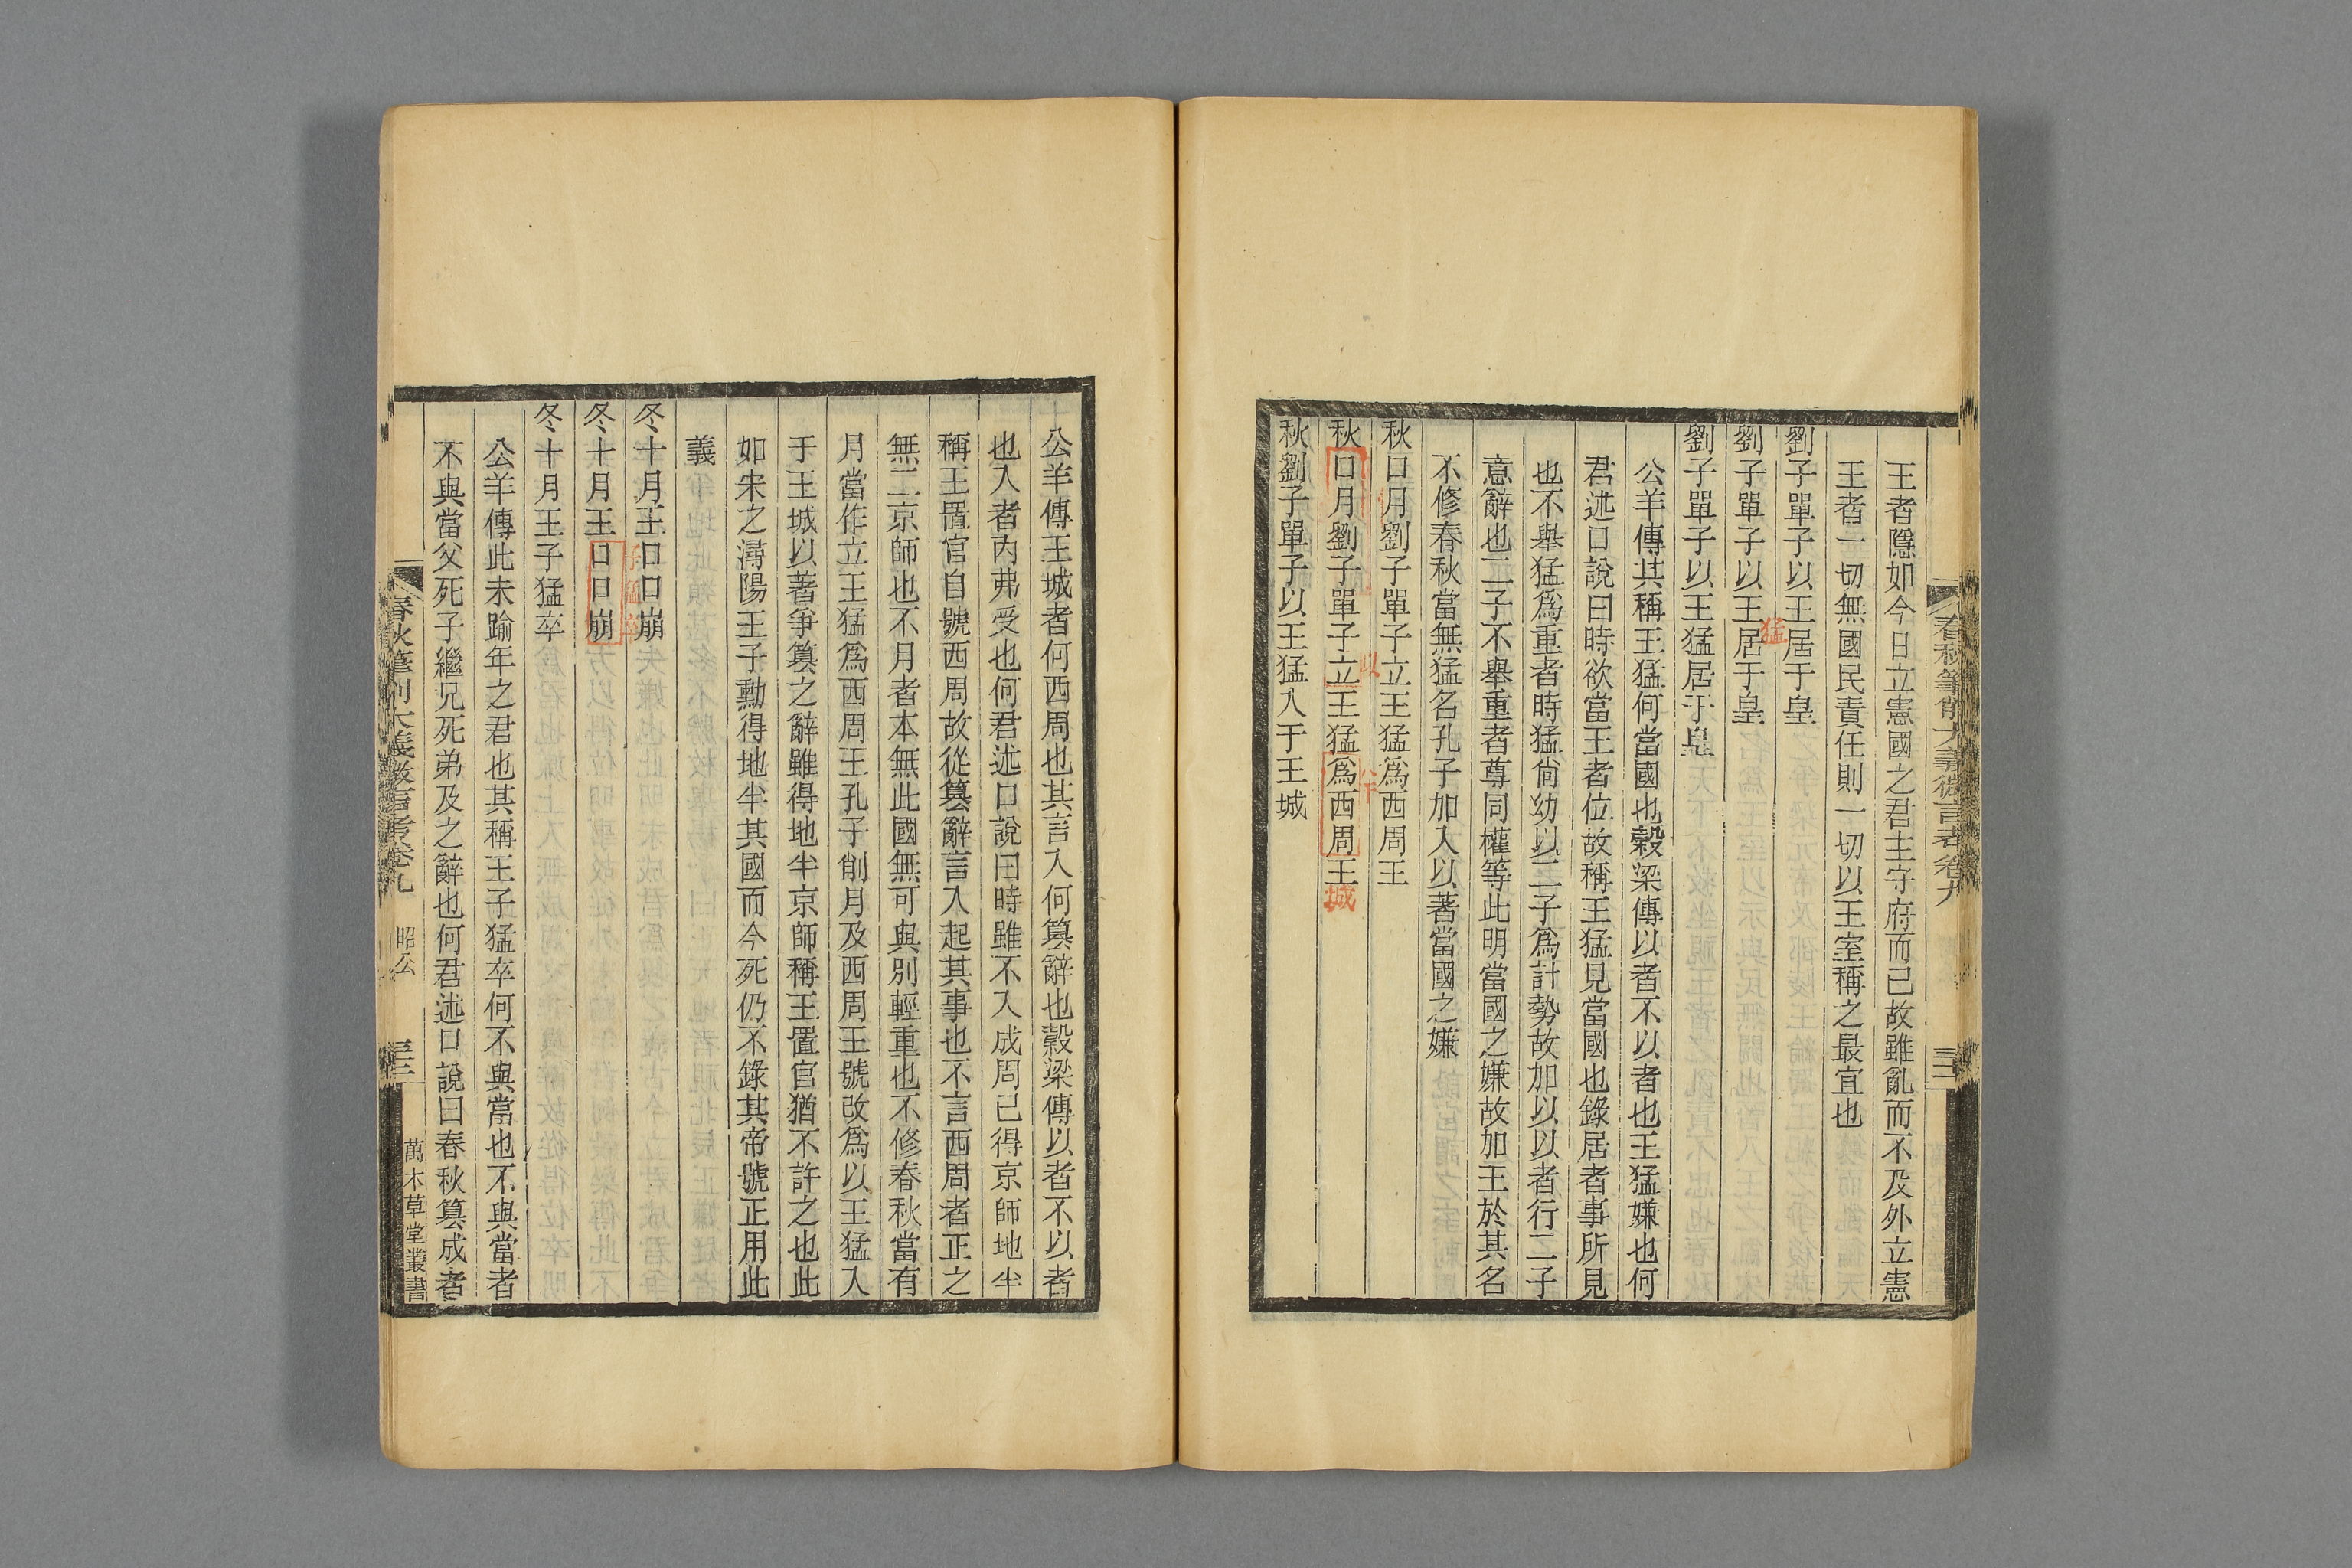 王者隱如今日立憲國之君主守府而已故雖亂而不及外立憲
王者一切無國民責任則一切以王室稱之最宜也
劉子單子以王居于皇
猛
劉子單子以王居于皇
劉子單子以王猛居于皇
公羊傳其稱王猛何當國也穀梁傳以者不以者也王猛嫌也何
君述口說曰時欲當王者位故稱王猛見當國也錄居者事所見
也不舉猛爲重者時猛尙幼以二子爲計勢故加以以者行二子
意辭也二子不舉重者尊同權等此明當國之嫌故加王於其名
不修春秋當無猛名孔子加入以著當國之嫌
秋口月劉子單子立王猛爲西周王
以
秋口月劉子單子立王猛爲西周王
城
秋劉子單子以王猛入于王城
春秋筆削大義微言考卷九
公羊傳王城者何西周也其言入何篡辭也穀梁傳以者不以者
也入者內弗受也何君述口說曰時雖不入成周已得京師地半
稱王置官自號西周故從篡辭言入起其事也不言西周者正之
無二京師也不月者本無此國無可與別輕重也不修春秋當有
月當作立王猛爲西周王孔子削月及西周王號改爲以王猛入
于王城以著爭篡之辭雖得地半京師稱王置官猶不許之也此
如宋之潯陽王子勳得地半其國而今死仍不錄其帝號正用此
義
冬十月王口口崩
子猛卒
冬十月王口口崩
冬十月王子猛卒
公羊傳此未踰年之君也其稱王子猛卒何不與當也不與當者
不與當父死子繼兄死弟及之辭也何君述口說曰春秋篡成者
春秋筆削大義微言考卷九 昭公 三十二 萬木草堂叢書